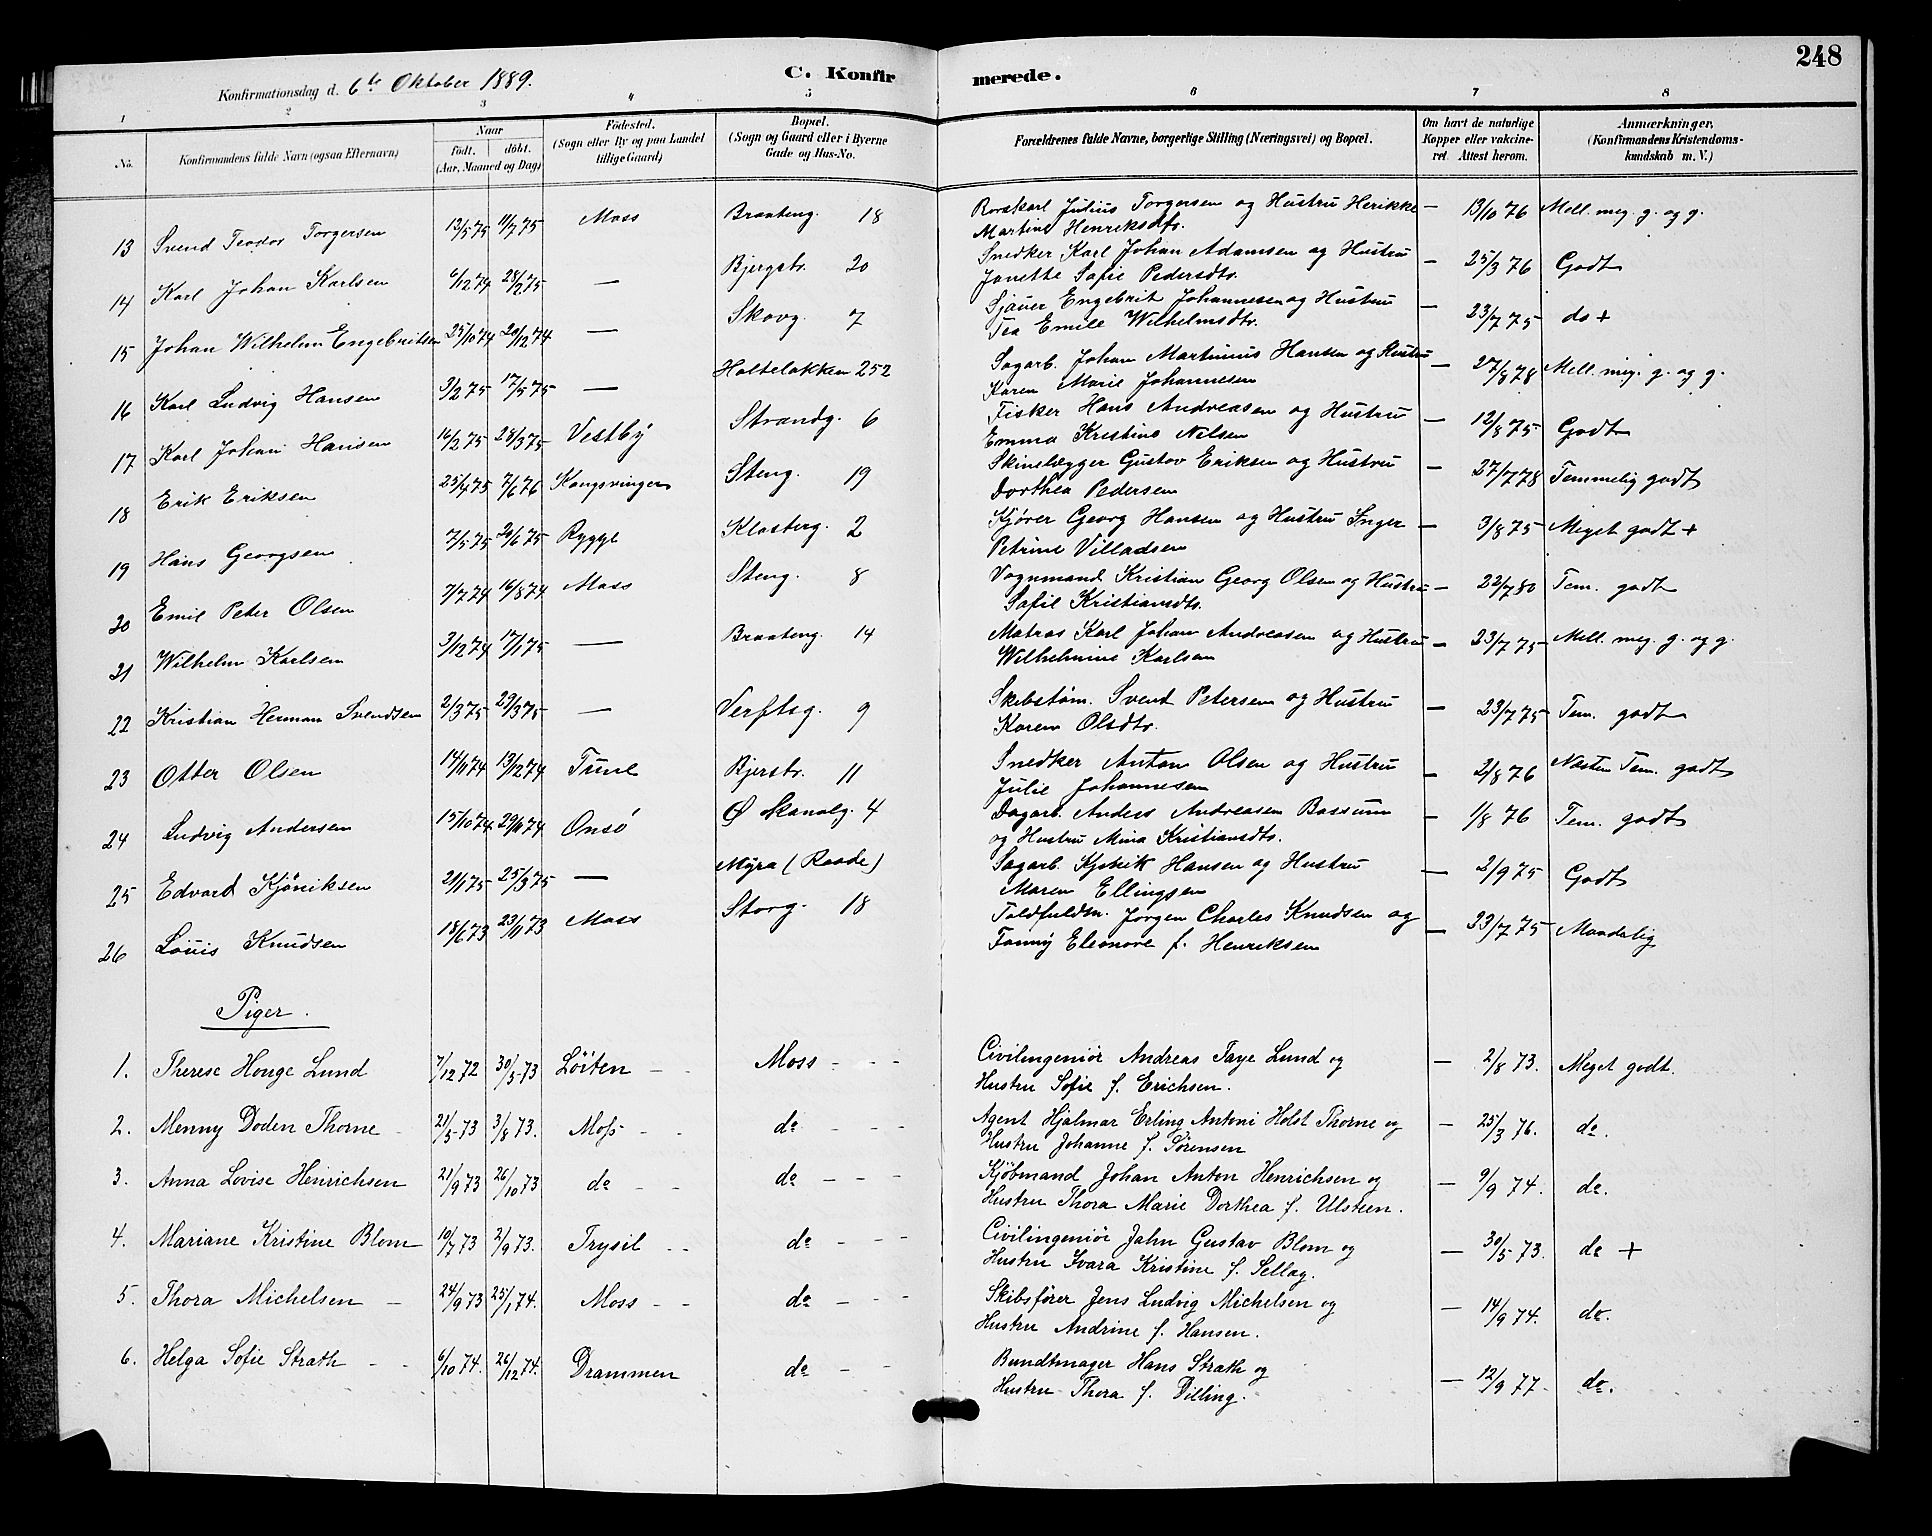 248
C. Konfirmerede.
Konfirmationsdag d. 6te Oktober 1889.
1 2 3 4 5 6 7 8
No. Konfirmandens fulde Navn (ogsaa Efternavn) Naar födt. döbt. (Aar, Maaned og Dag) Födested. (Sogn eller By og paa Landet tillige Gaard) Bopæl. (Sogn og Gaard eller i Byerne Gade og Hus-No. Forældrenes fulde Navne, borgerlige Stilling (Næringsvei) og Bopæl. Om havt de naturlige Kopper eller vakcineret. Attest herom. Anmærkninger, (Konfirmandens Kristendomskundskab m. V.)
13 Svend Teodor Torgersen 13/5 75 11/7 75 Moss Braateng. 18 Julius Torgersen og Hustru Herikke — 13/10 76 Mell. meg. g. og g.
Martine Henriksdtr.
14 Karl Johan Karlsen 6/12 74 28/2 75 — Bjergstr. 20 Snedker Karl Johan Adamsen og Hustru — 25/3 76 Godt
Janette Sofie Pedersdtr.
15 Johan Wilhelm Engebritsen 25/10 74 20/12 74 — Skovg. 7 Sjauer Engebrit Johannesen og Hustru — 23/7 75 do +
Tea Emile Wilhelmsdtr.
16 Karl Ludvig Hansen 3/2 75 17/5 75 — Holteløkken 252 Sagarb. Johan Martinius Hansen og Hustru — 27/8 78 Mell. meg. g. og g.
Karen Marie Johannesen
17 Karl Johan Hansen 16/2 75 28/3 75 Vestby Strandg. 6 Fisker Hans Andreasen og Hustru — 12/8 75 Godt
Emma Kristine Nilsen
18 Erik Eriksen 23/4 75 7/6 76 Kongsvinger Steng. 19 Skinelægger Gustov Eriksen og Hustru — 27/7 78 Temmelig godt
Dorthea Pedersen
19 Hans Georgsen 7/5 75 20/6 75 Rygge Klosterg. 2 Kjører Georg Hansen og Hustru Inger — 3/8 75 Meget godt +
Petrine Villadsen
20 Emil Peter Olsen 7/7 74 16/8 74 Moss Steng. 8 Vognmand Kristian Georg Olsen og Hustru — 22/7 80 Tem. godt
Sofie Kristiansdtr.
21 Wilhelm Karlsen 3/12 74 17/1 75 — Braateng. 14 Matros Karl Johan Andreasen og Hustru — 23/7 75 Mell. meg. g. og g.
Wilhelmine Karlsen
22 Kristian Herman Svendsen 2/3 75 29/3 75 — Verftsg. 9 Skibstøm. Svend Petersen og Hustru — 23/7 75 Tem. godt
Karen Olsdtr.
23 Otter Olsen 14/11 74 13/12 74 Tune Bjerstr. 11 Snedker Anton Olsen og Hustru — 2/8 76 Næsten Tem. godt
Julie Johannesen
24 Ludvig Andersen 15/10 74 29/11 74 Onsö Ø Kanalg. 4 Dagarb. Anders Andreasen Bassum — 1/8 76 Tem. godt
og Hustru Mina Kristiansdtr.
25 Edvard Kjöniksen 21/1 75 25/3 75 — Myra (Raade) Sagarb. Hansen og Hustru — 2/9 75 Godt
Maren Ellingsen
26 Louis Knudsen 18/6 73 23/11 73 Moss Storg. 18 Toldfuldm. Jørgen Charles Knudsen og — 23/7 75 Maadelig
Fanny Eleonore f. Henriksen
Piger.
1. Therese Houge Lund 7/12 72 30/5 73 Löiten Moss Civilingeniör Andreas Taye Lund og — 2/8 73. Meget godt.
Hustru Sofie f. Erichsen.
2. Menny Doden Thorne 21/5 73 3/8 73. Moss do Agent Hjalmar Erling Antoni Holst Thorne og — 25/3 76. do.
Hustru Johanne f. Sørensen
3. Anna Lovise Henrichsen 21/9 73 26/10 73 do do Kjöbmand Johan Anton Henrichsen og — 9/9 74. do.
Hustru Thora Marie Dorthea f. Ulsteen.
4. Mariane Kristine Blom 10/7 73 2/9 73. Trysil do Civilingeniör Jahn Gustav Blom og — 30/5 73. do +
Hustru Ivara Kristine f. Sellæg.
5. Thora Michelsen 24/9 73 25/1 74. Moss do Skibsfører Jens Ludvig Michelsen og — 14/9 74. do.
Hustru Andrine f. Hansen.
6. Helga Sofie Strath 6/10 74. 26/12 74. Drammen do Bundtmager Hans Strath og — 12/9 77. do.
Hustru Thora f. Dilling.